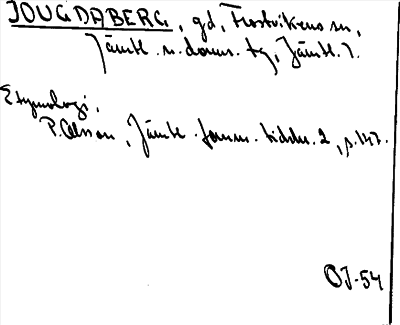 JOUGDABERG, gd, Frostvikens sn,
Jämtl. n. doms. tg, Jämtl. l.
Etymologi.
P. Olsson, Jämtl. fornm. tidskr. 2, s. 147.
OJ-54